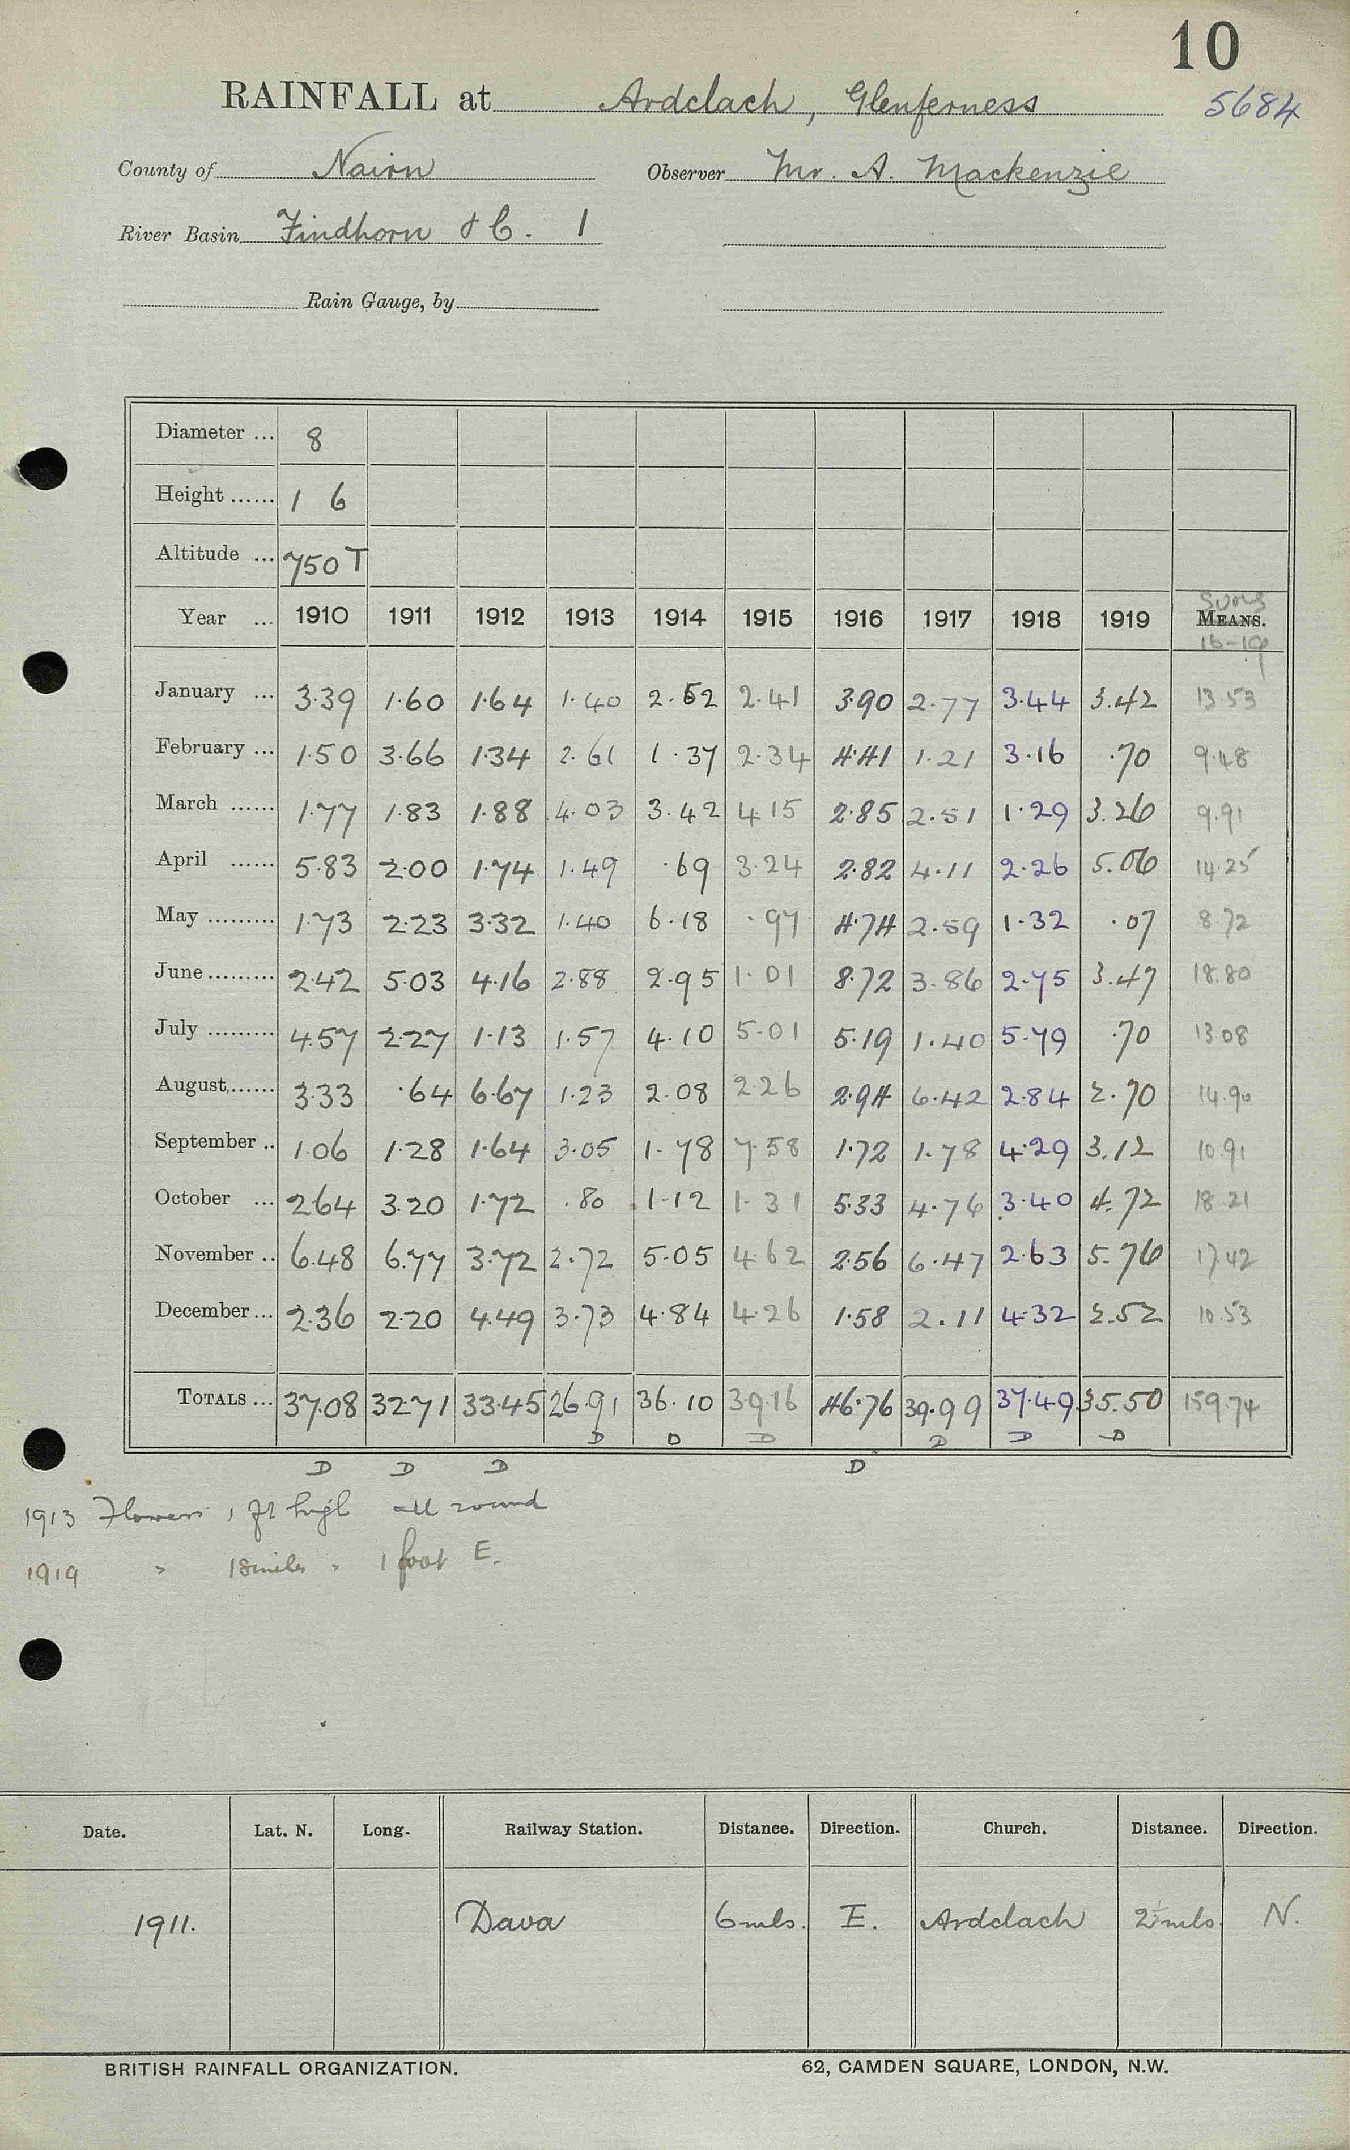 10
RAINFALL at Ardclach, Glenferness 5684
County of Nairn Observer Mr. A. Mackenzie
River Basin Findhorn &C. 1
Rain Gauge, by
Diameter ... 8
Height ...... 1 6
Altitude ... 750 T
Year ... 1910 1911 1912 1913 1914 1915 1916 1917 1918 1919 Sums MEANS. 16-19
January ... 3.39 1.60 1.64 1.40 2.52 2.41 3.90 2.77 3.44 3.42 13.53
February ... 1.50 3.66 1.34 2.61 1.37 2.34 4.41 1.21 3.16 .70 9.48
March ...... 1.77 1.83 1.88 4.03 3.42 4.15 2.85 2.51 1.29 3.26 9.91
April ...... 5.83 2.00 1.74 1.49 .69 3.24 2.82 4.11 2.26 5.06 14.25
May ......... 1.73 2.23 3.32 1.40 6.18 .97 4.74 2.59 1.32 .07 8.72
June ......... 2.42 5.03 4.16 2.88 2.95 1.01 8.72 3.86 2.75 3.47 18.80
July ......... 4.57 2.27 1.13 1.57 4.10 5.01 5.19 1.40 5.79 .70 13.08
August ...... 3.33 .64 6.67 1.23 2.08 2.26 2.94 6.42 2.84 2.70 14.90
September .. 1.06 1.28 1.64 3.05 1.78 7.58 1.72 1.78 4.29 3.12 10.91
October ... 2.64 3.20 1.72 .80 1.12 1.31 5.33 4.76 3.40 4.72 18.21
November .. 6.48 6.77 3.72 2.72 5.05 4.62 2.56 6.47 2.63 5.76 17.42
December ... 2.36 2.20 4.49 3.73 4.84 4.26 1.58 2.11 4.32 2.52 10.53
TOTALS ... 37.08 32.71 33.45 26.91 36.10 39.16 46.76 39.99 37.49 35.50 159.74
D D D D D D
D D D D
1913 Flowers 1 ft high all round
1919 " 1 foot E.
Date. Lat. N. Long. Railway Station. Distance. Direction. Church. Distance. Direction.
1911. Dava 6 mls. E. Ardclach mls. N.
BRITISH RAINFALL ORGANIZATION. 62, CAMDEN SQUARE, LONDON, N.W.